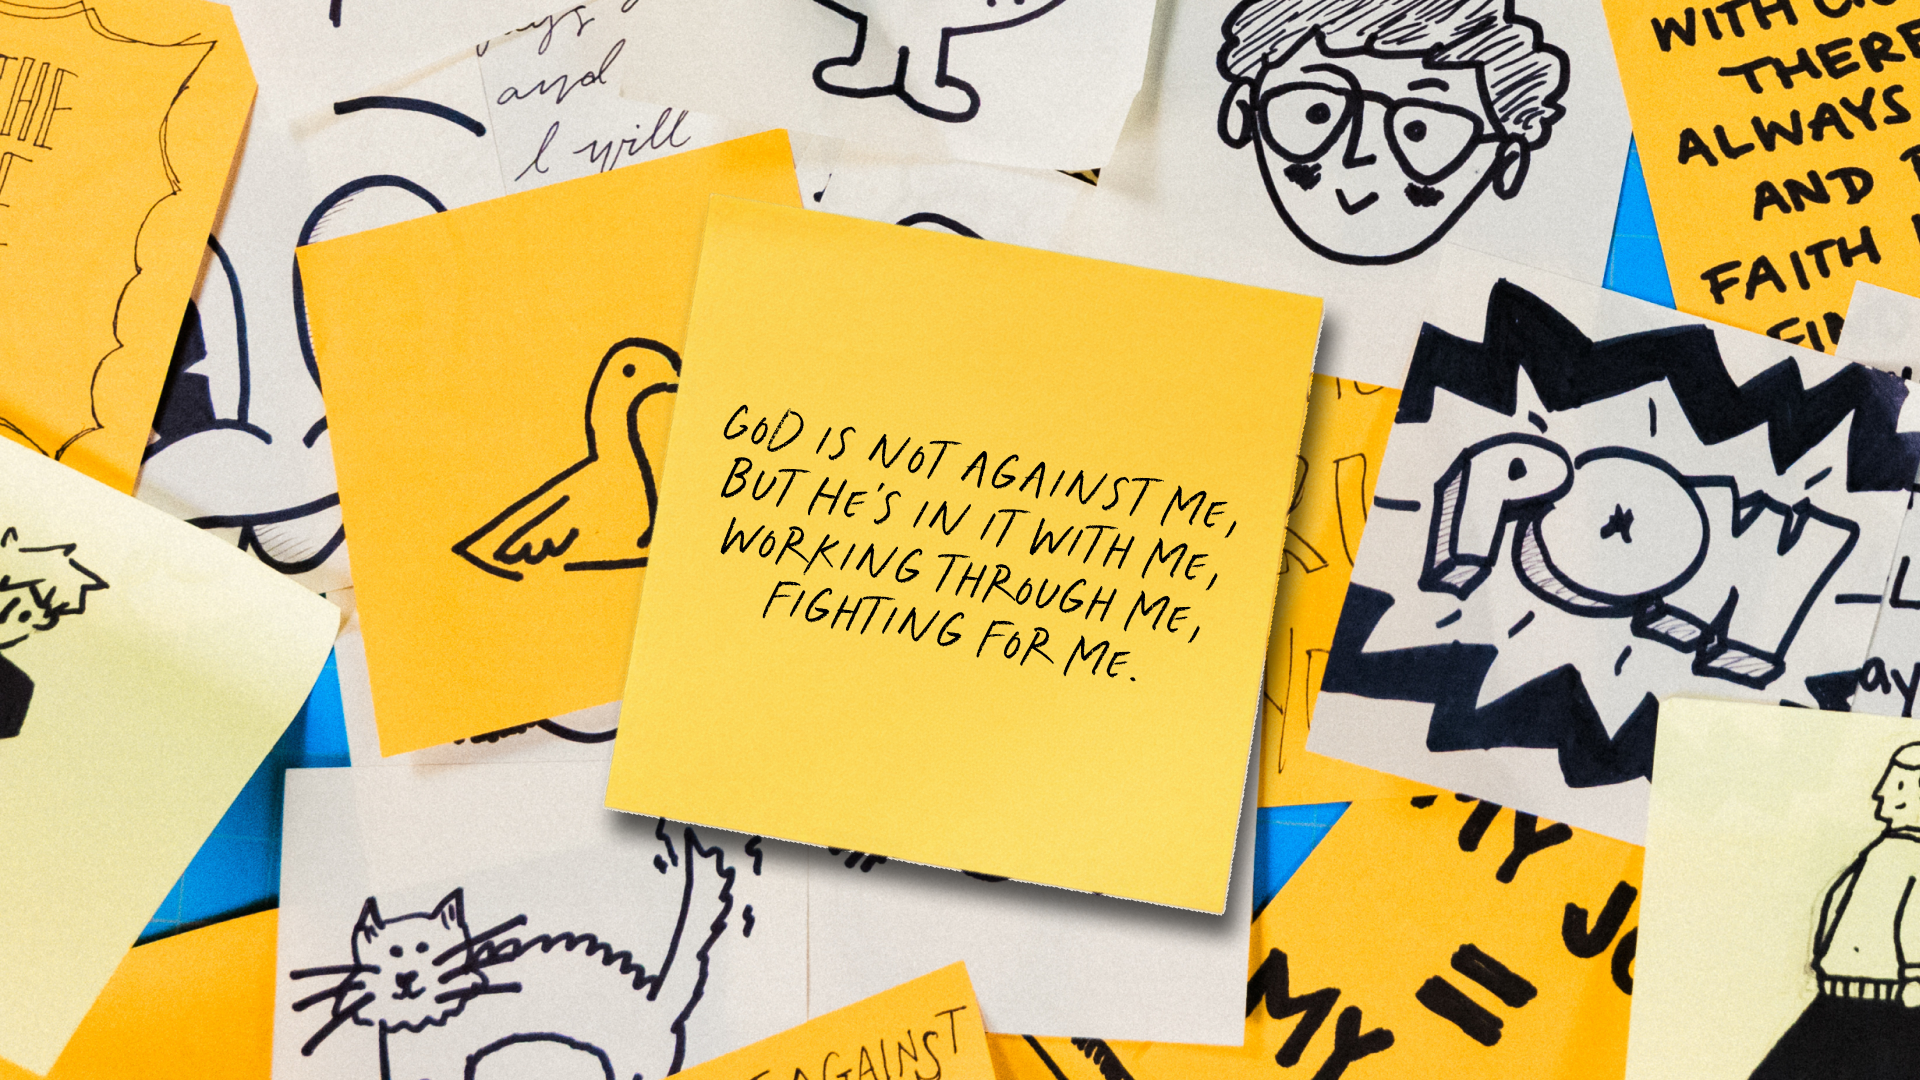 THE
and
I will
WITH
THERE
ALWAYS
AND
FAITH
GOD IS NOT AGAINST ME,
BUT HE'S IN IT WITH ME,
WORKING THROUGH ME,
FIGHTING FOR ME.
POW
MY
MY =
AGAINST